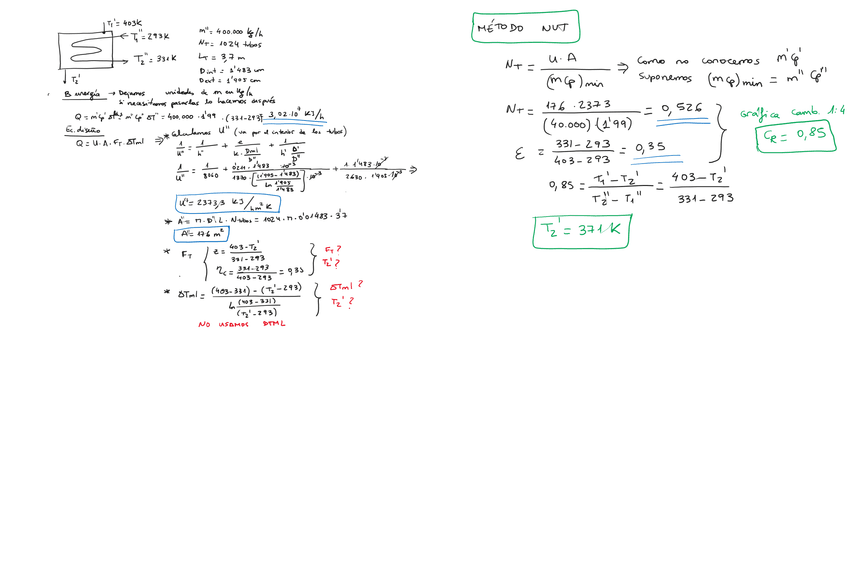 T₁' = 403K
T₁'' = 293K
T₂'' = 331K
T₂'
m'' = 400.000 kg/h
NT = 1024 tubos
LT = 3,7 m
Dint = 1'483 cm
Dext = 1'905 cm
B energía → Dejamos unidades de m en kg/h
si necesitamos pasarlas lo hacemos después
Q = m'Cp' ΔT' = m''Cp'' ΔT'' = 400.000 · 1'99 · (331-293) = 3,02·10⁷ KJ/h
Ec. diseño
Q = U · A · FT · ΔTml ⇒
* Calculamos U'' (va por el interior de los tubos)
1/U'' = 1/h'' + e/(k · Dml/D'') + 1/(h' D'/D'')
U'' = 2373,3 KJ/hm²K
* A'' = π · D'' · L · Ntubos = 1024 · π · 0'01483 · 3'7
A'' = 176 m²
* FT { z = (403-T₂')/(331-293)
ηc = (331-293)/(403-293) = 0,35 } FT? T₂'?
* ΔTml = ((403-331) - (T₂'-293))/(ln (403-331)/(T₂'-293)) } ΔTml? T₂'?
NO USAMOS DTML
MÉTODO NUT
NT = U · A/(mCp)min ⇒ Como no conocemos m'Cp'
suponemos (mCp)min = m'' Cp''
NT = 176 · 2373/(40.000) (1'99) = 0,526
ε = (331-293)/(403-293) = 0,35
Gráfica camb. 1:4
CR = 0,85
0,85 = (T₁' - T₂')/(T₂'' - T₁'') = (403 - T₂')/(331 - 293)
T₂' = 371 K